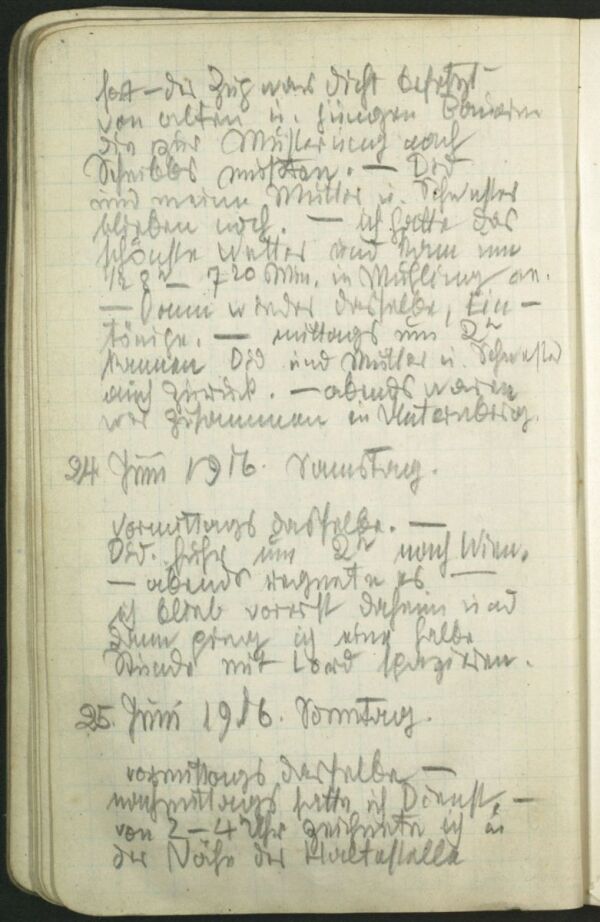 fort – der Zug war dicht besetzt
von alten u. jungen Bauern
die zur Musterung nach
Scheibbs mussten. –
und meine Mutter u. Schwester
blieben noch. – ich hatte das
schönste Wetter und kam um
1/2 8h – 7 20 Min. in Mühling an.
– Dann wieder dasselbe, Ein-
tönige. – mittags um 2h
kamen und Mutter u. Schwester
auch zurück. – abends waren
wir zusammen in Unternberg.
24 Juni 1916. Samstag.
vormittags dasselbe. –
fuhr um 2h nach Wien.
– abends regnete es –
ich blieb vorerst daheim und
dann ging ich eine halbe
Stunde mit Lord spazieren.
25. Juni 1916. Sonntag.
vormittags dasselbe –
nachmittags hatte ich Dienst, –
von 2–4 Uhr zeichnete ich in
der Nähe der Haltestelle